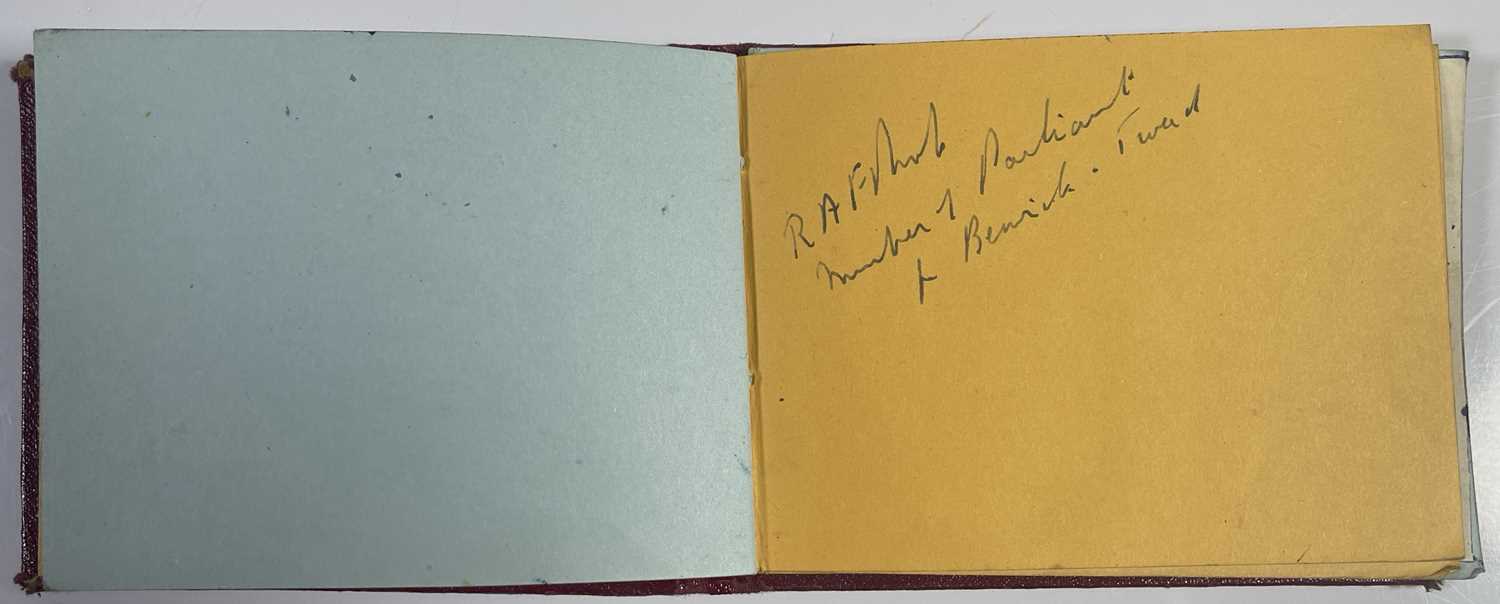 R A F
Member of Parliament
for Berwick. Tweed